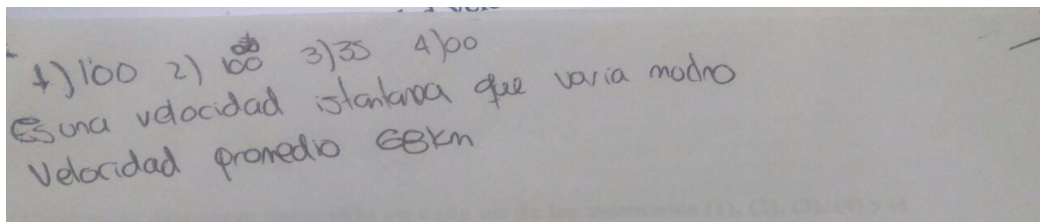 1) 100 2) 100 3) 35 4) 00
Es una velocidad istantanea que varia modro
Velocidad promedio 68km